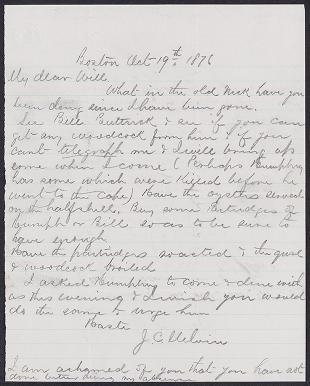 Boston Oct 19th. 1876
My dear Will,
What in the old Nick have you
been doing since I have been gone.
See Bill Buttrick & see if you can
get any woodcock from him. if you
can't telegraph me & I will bring up
some when I come (Perhaps Humphrey
has some which were killed before he
went to the Cape) Have the oysters served
on the half shell. Buy some Partridges of
Humph or Bill so as to be sure to
have enough
Have the partridges roasted & the quail
& woodcock broiled
I asked Humphrey to come & dine with
us this evening & I wish you would
do the same & urge him
Haste
J C Melvin
I am ashamed of you that you have not
done better during my absence